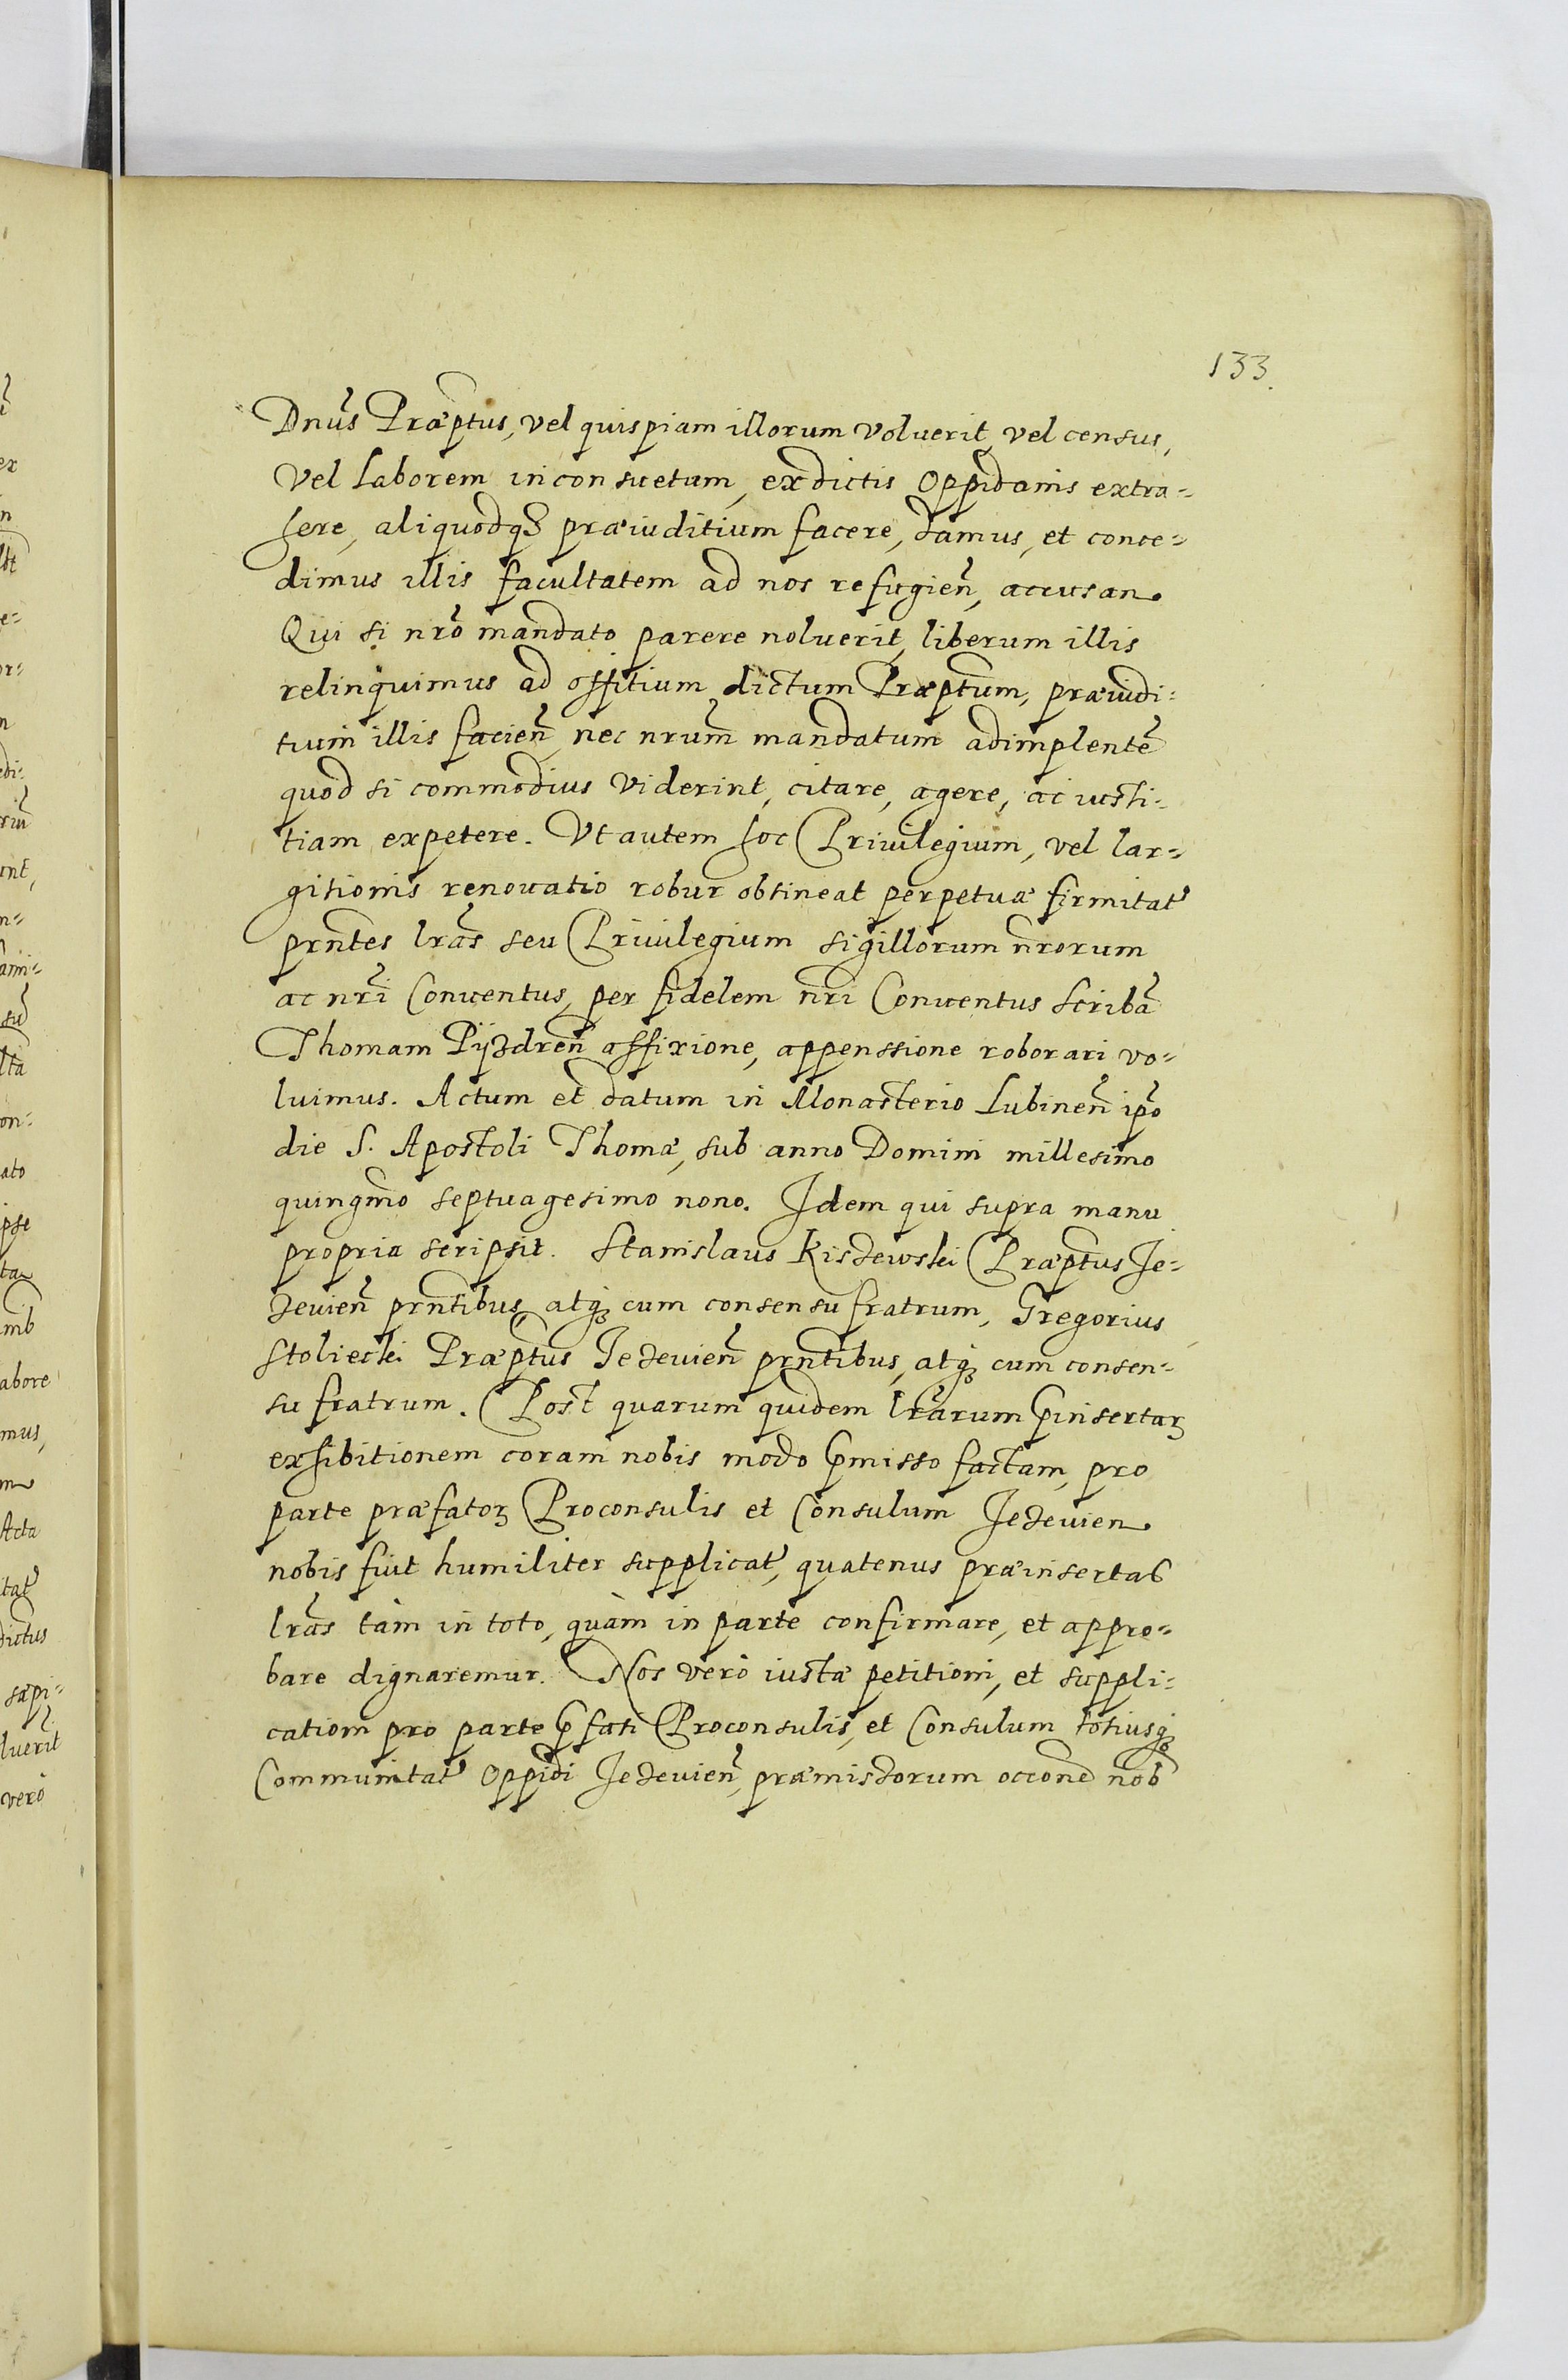 133.
Dnūs Præptus, vel quispiam illorum voluerit, vel census,
vel laborem inconsuetam, ex dictis Oppidanis extra-
here, aliquodqꝫ præiuditium facere, damus, et conce-
dimus illis facultatem ad nos refugien̄, accusan.
Qui si nrō mandato parere noluerit, liberum illis
relinquimus ad offitium dictum Præptum, præiudi-
tium illis facien̄, nec nrūm mandatum adimplentē
quod si commodius viderint, citare, agere, ac iusti-
tiam expetere. Vt autem hoc Priuilegium, vel lar-
gitionis renouatio robur obtineat perpetuæ firmitat
prn̄tes lrās seu Priuilegium sigillorum nr̄orum
ac nrī Conuentus, per fidelem nr̄i Conuentus Scribā
Thomam Pÿzdren̄ affixione, appenssione roborari vo-
luimus. Actum et datum in Monasterio Lubinen̄ ipō
die S. Apostoli Thomæ, sub anno Domini millesimo
quingmō septuagesimo nono. Idem qui supra manu
propria scripsit. Stanislaus Kiszewski Præptus Je-
zeuien̄ prn̄tibus, atqꝫ cum consensu fratrum, Gregorius
Stoliecki Præptus Jezeuien̄ prn̄tibus, atqꝫ cum consen-
su fratrum. Post quarum quidem lrārum p̄insertaꝝ
exhibitionem coram nobis modo p̄misso factam, pro
parte præfatoꝝ Proconsulis et Consulum Jezeuien.
nobis fuit humiliter supplicat, quatenus præinsertas
lrās tàm in toto, quàm in parte confirmare, et appro-
bare dignaremur. Nos verò iustæ petitioni, et suppli-
cationi pro parte p̄fati Proconsulis, et Consulum totiusqꝫ
Communitat Oppidi Jezeuien̄, præmissorum occone nob